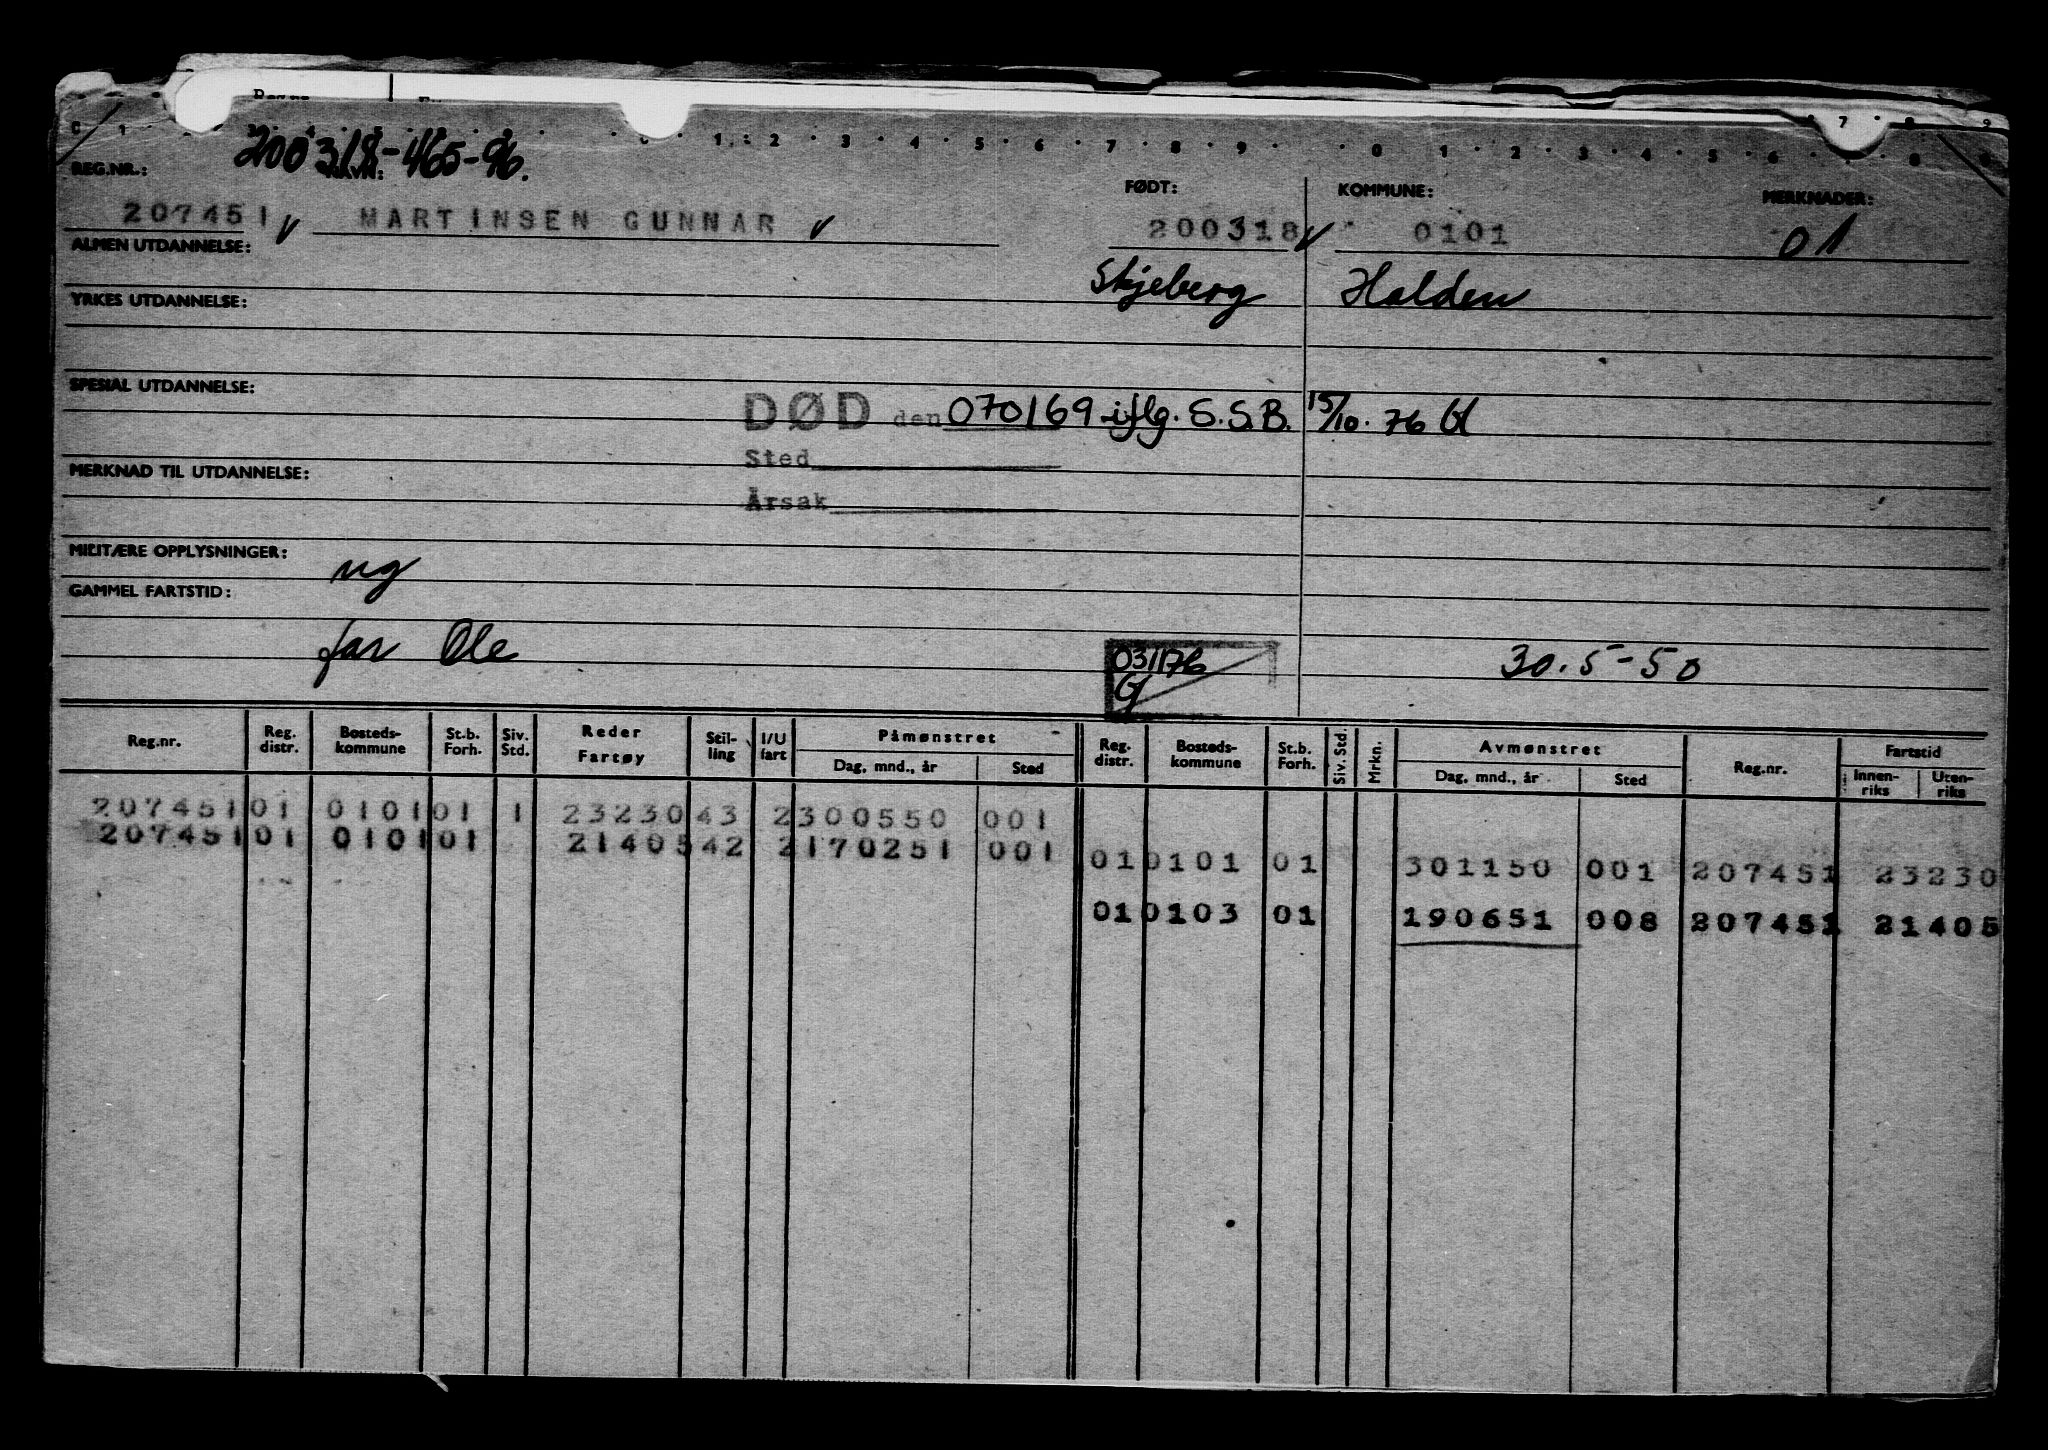 200318-465-96.
REG.NR.: NAVN: FØDT: KOMMUNE: MERKNADER:
207451 MARTINSEN GUNNAR 200318 0101 01
ALMEN UTDANNELSE:
Skjeberg Halden
YRKES UTDANNELSE:
SPESIAL UTDANNELSE:
DØD den 070169 iflg. S.S.B. 15/10.76
Sted
MERKNAD TIL UTDANNELSE:
Årsak
MILITÆRE OPPLYSNINGER: ug
GAMMEL FARTSTID:
far Ole
031176
30.5-50
Reg.nr. Reg. distr. Bosteds-kommune St.b. Forh. Siv. Std. Reder Fartøy Stil-ling I/U fart Påmønstret Dag, mnd., år Sted Reg. distr. Bosteds-kommune St.b. Forh. Siv. Std. Mrkn. Avmønstret Dag, mnd., år Sted Reg.nr. Fartstid Innen-riks Uten-riks
207451 01 0101 01 1 23230 43 2 300550 001
207451 01 0101 01 21405 42 2 170251 001
01 0101 01 301150 001 207451 23230
01 0103 01 190651 008 207451 21405